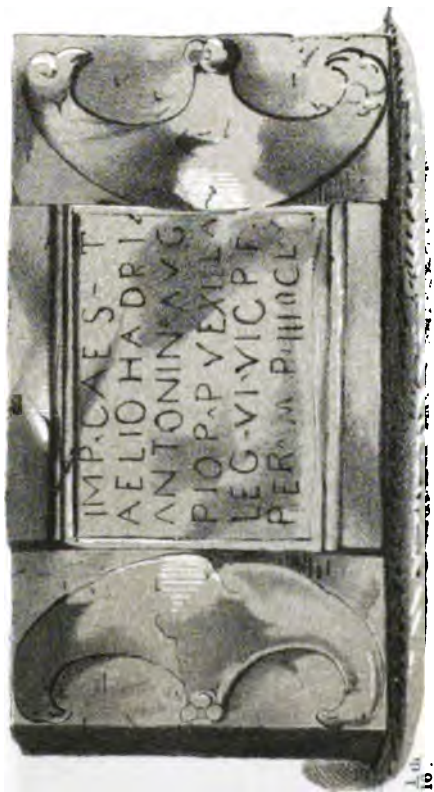 IMP·CAES·T
AELIO HADRI
ANTONINO AVG
PIO P·P VEXILLA
LEG·VI·VIC P F
PER M P
1/16 th.